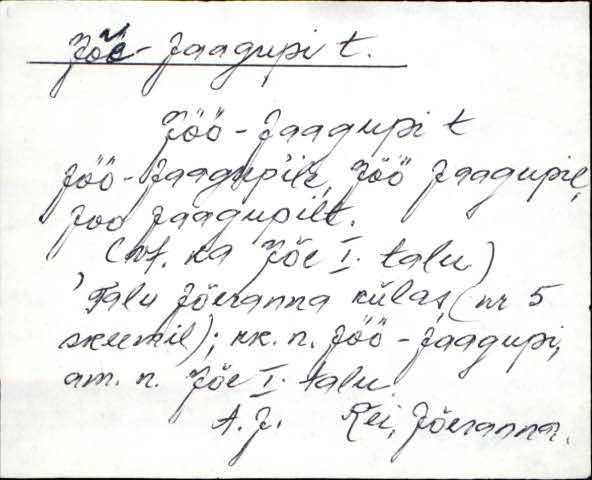 Jõe-Jaagupi t.
Jöö-Jaagupi t
Jöö-Jaagupile, Jöö Jaagupil,
Jöö Jaagupilt.
(vt. ka Jõe I. talu)
Talu Jõeranna külas, (nr 5
skeemil); rk. n. Jöö-Jaagupi,
am. n. Jõe I. talu.
A. J. Rei, Jõeranna.